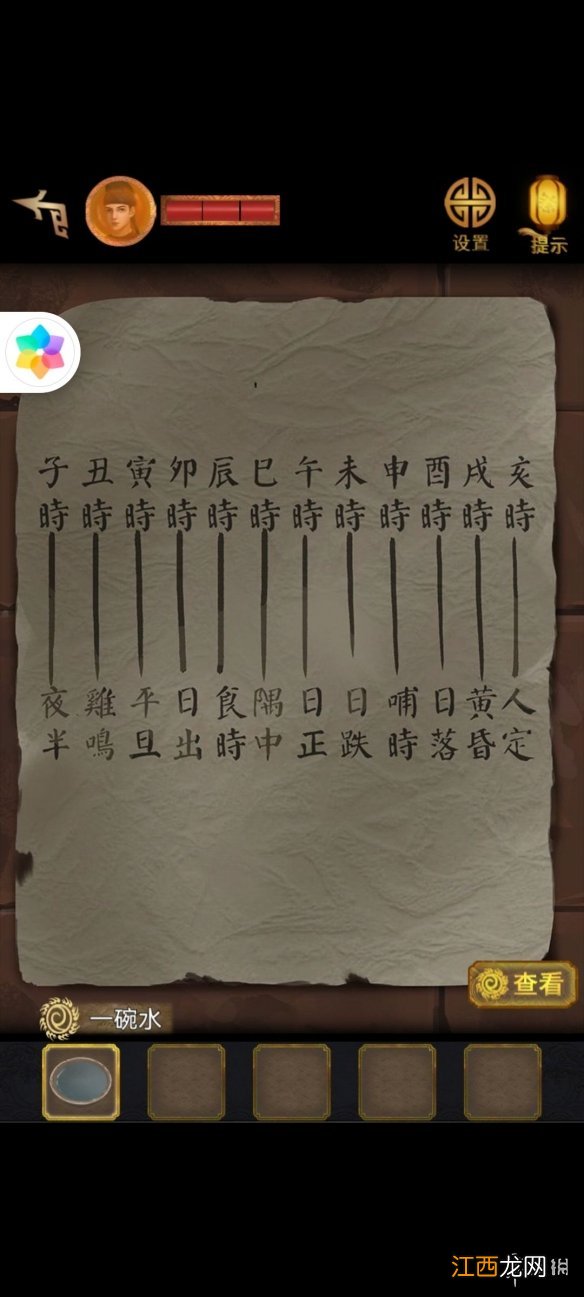 设置
提示
子丑寅卯辰巳午未申酉戌亥
時時時時時時時時時時時時
夜雞平日食隅日日哺日黄人
半鳴旦出時中正跌時落昏定
查看
一碗水
江西龙网